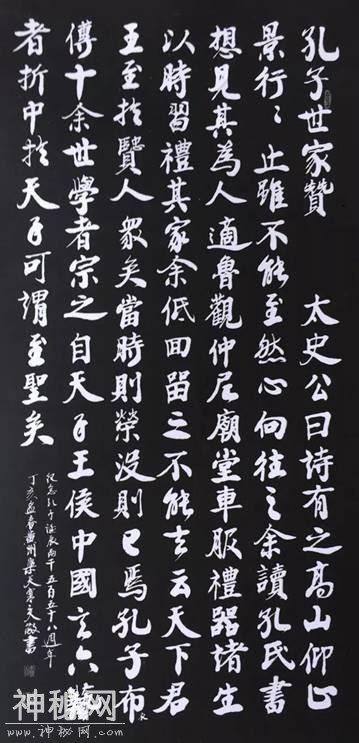 孔子世家贊 太史公曰詩有之高山仰止
景行〻止雖不能至然心向往之余讀孔氏書
想見其為人適魯觀仲尼廟堂車服禮器諸生
以時習禮其家余低回留之不能去云天下君
王至於賢人眾矣當時則榮沒則已焉孔子布衣
傳十余世學者宗之自天子王侯中國言六藝
者折中於天子可謂至聖矣
紀念孔子誕辰兩千五百五十八週年
丁亥孟春黃州
神秘网
www.神秘网.com